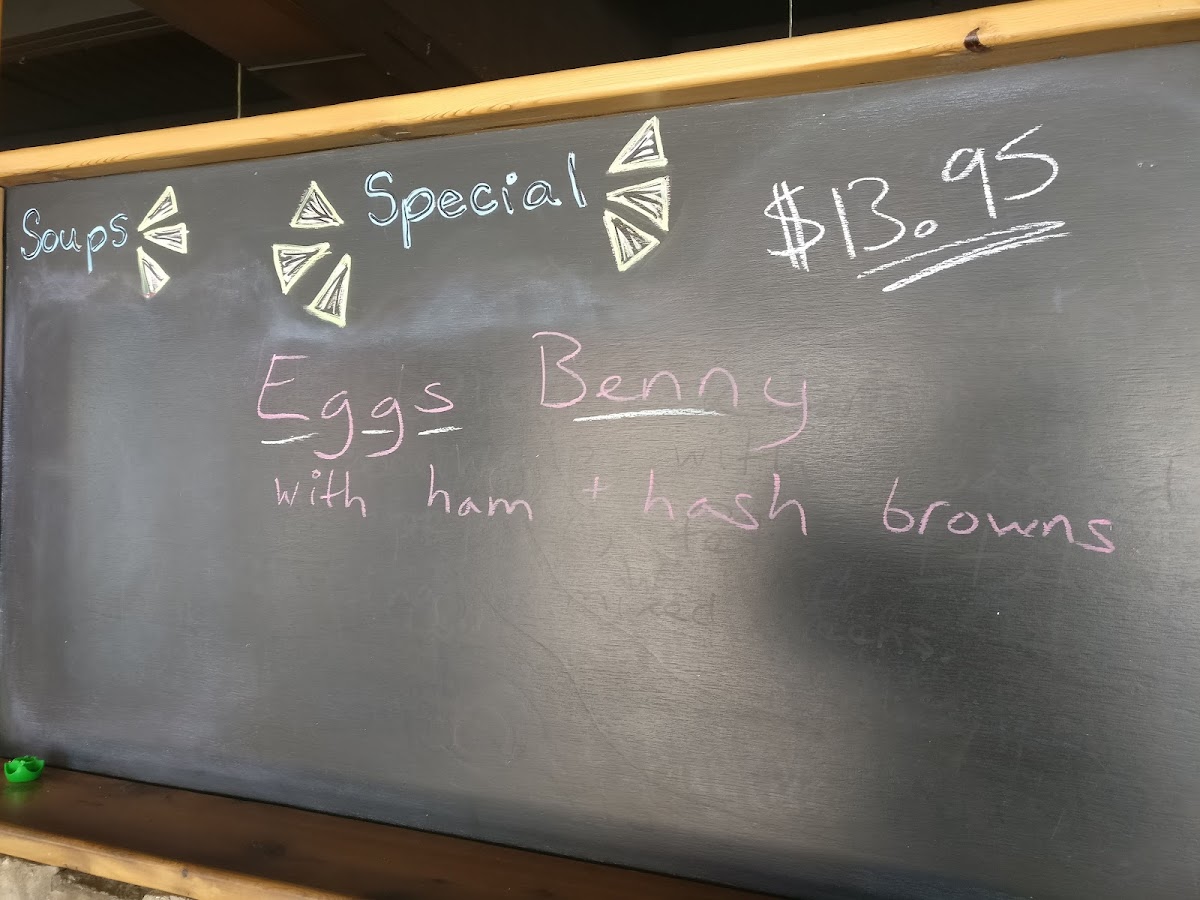 Soups Special $13.95
Eggs Benny
with ham + hash browns